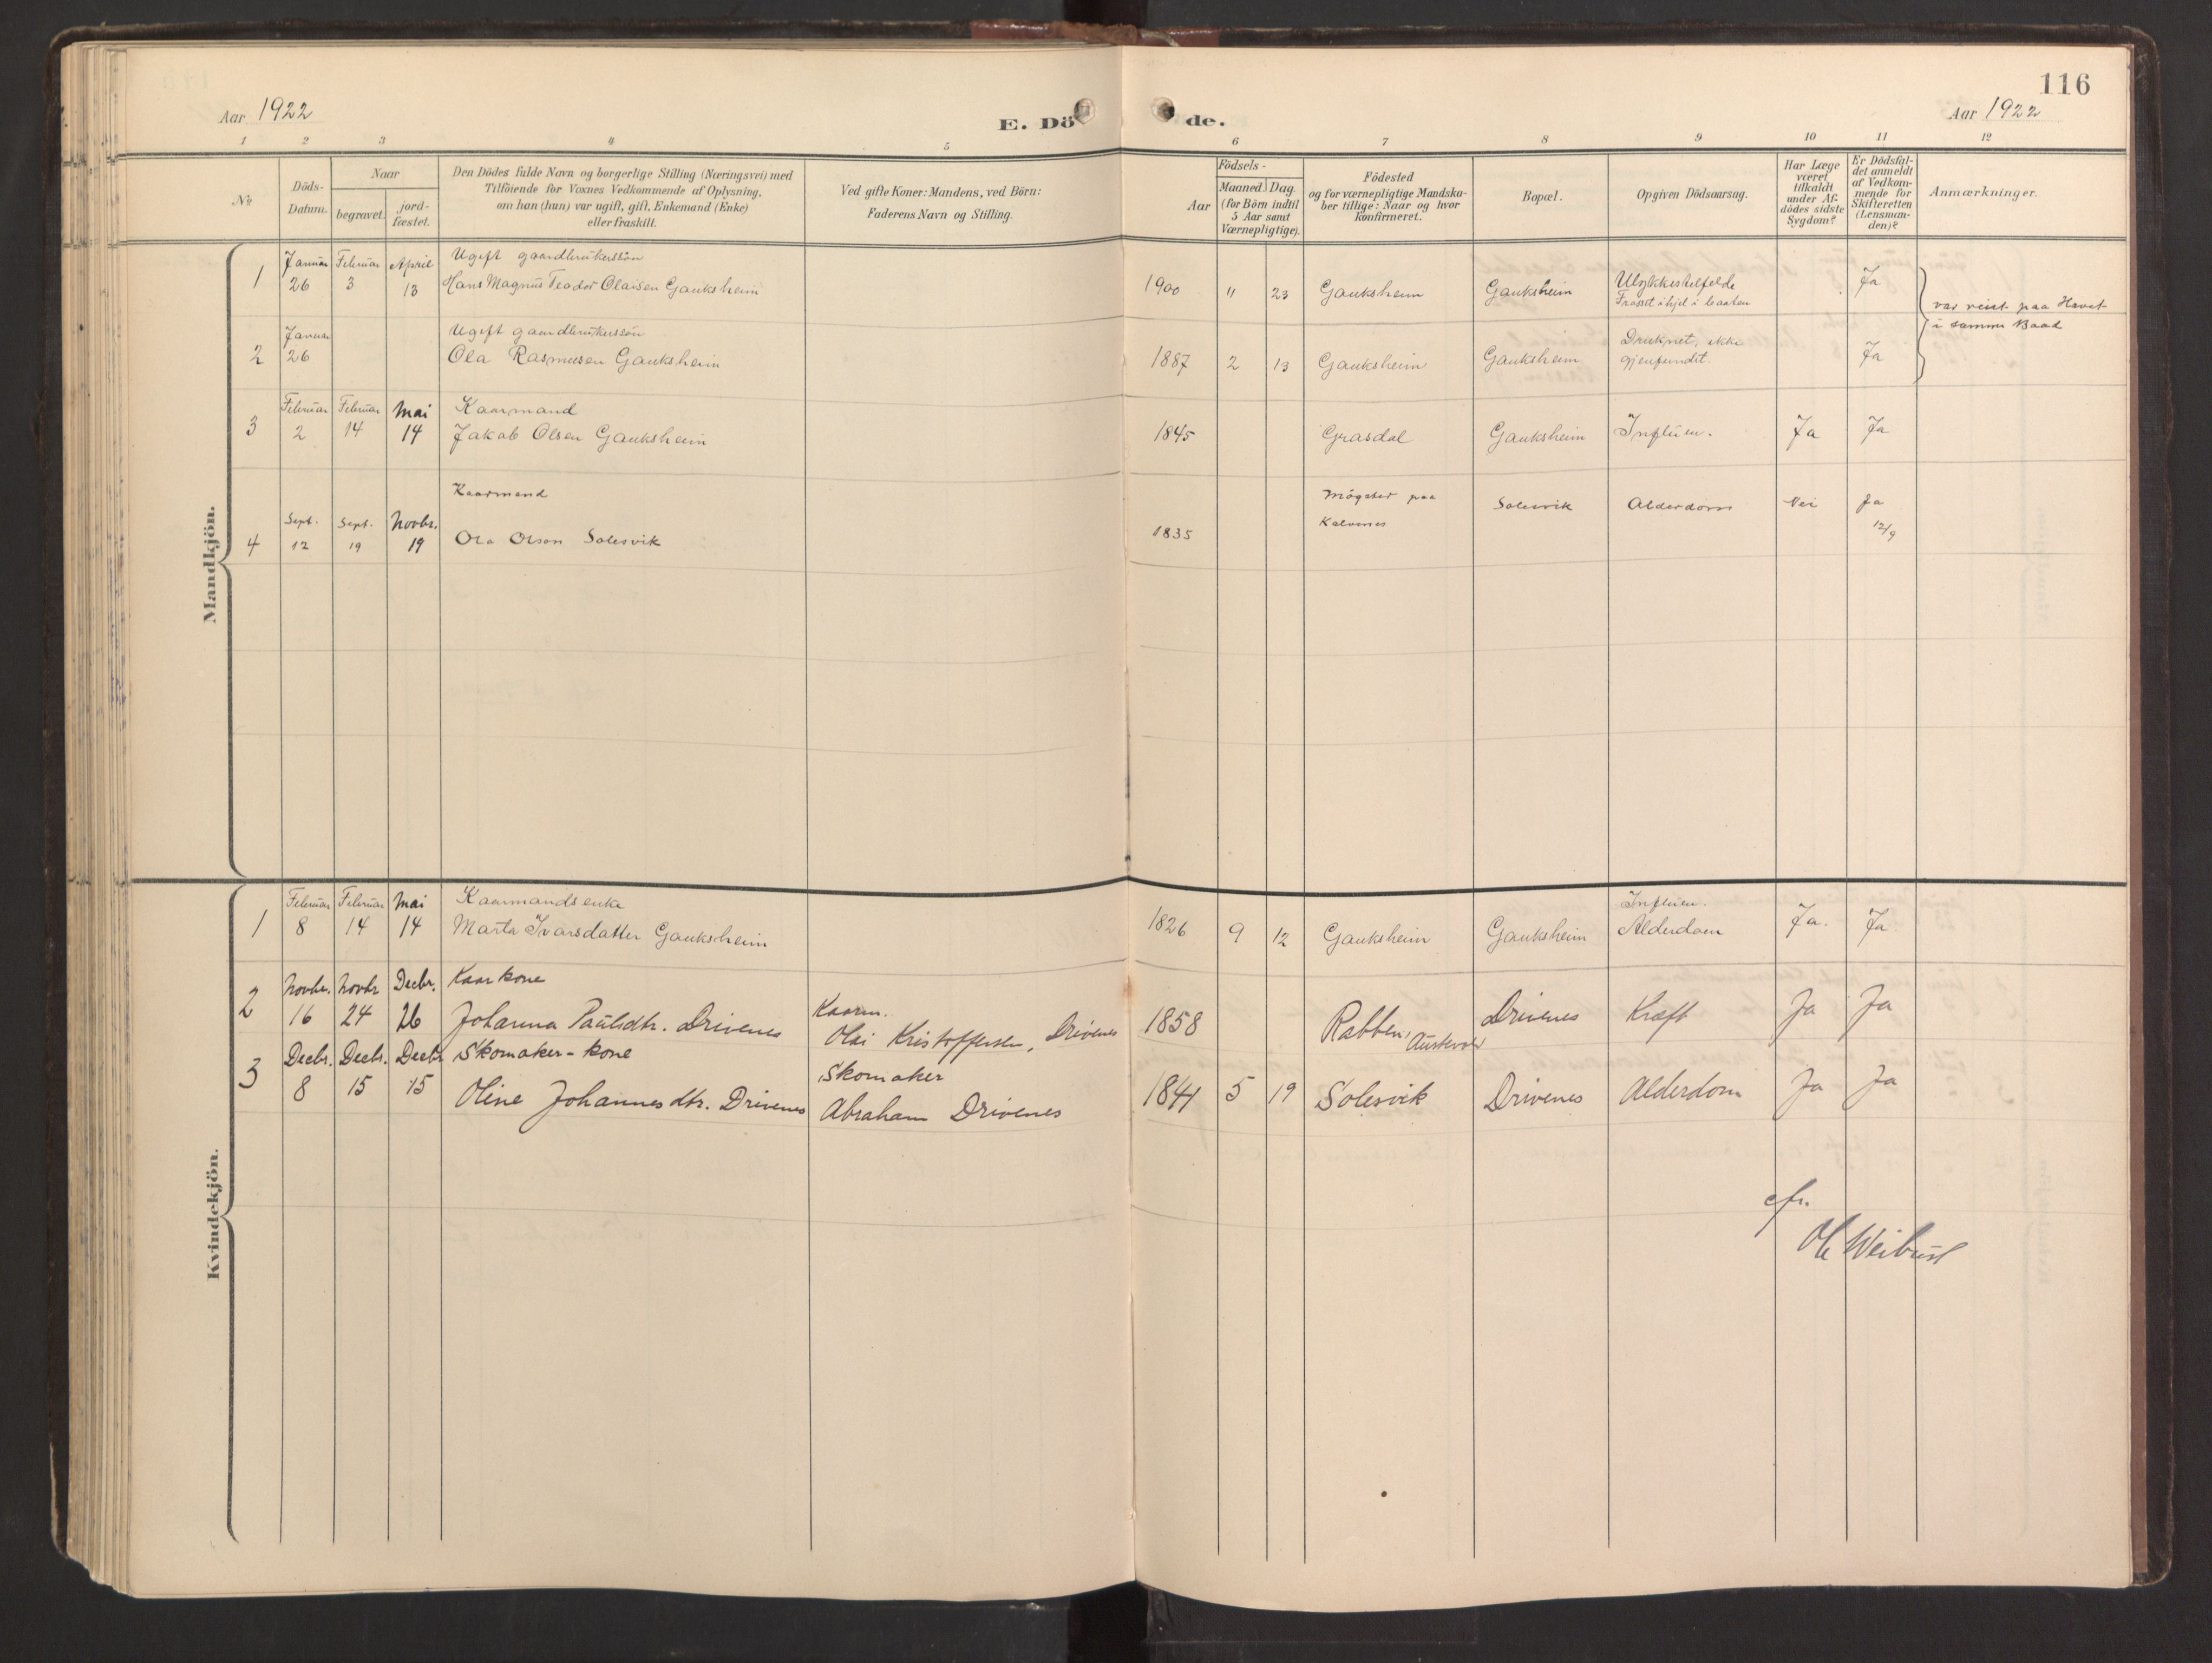 116
Aar 1922
E. Dö de.
Aar 1922
1 2 3 4 5 6 7 8 9 10 11 12
No
Döds-
Datum.
Naar
begravet.
jord-
fæstet.
Den Dödes fulde Navn og borgerlige Stilling (Næringsvei) med
Tilföiende for Voxnes Vedkommende af Oplysning,
om han (hun) var ugift, gift, Enkemand (Enke)
eller fraskilt.
Ved gifte Koner: Mandens, ved Börn:
Faderens Navn og Stilling.
Födsels-
Aar
Maaned. Dag.
(for Börn indtil
5 Aar samt
Værnepligtige).
Födested
og for værnepligtige Mandska-
ber tillige: Naar og hvor
konfirmeret.
Bopæl.
Opgiven Dödsaarsag.
Har Læge
været
tilkaldt
under Af-
dödes sidste
Sygdom?
Er Dödsfal-
det anmeldt
af Vedkom-
mende for
Skifteretten
(Lensman-
den)?
Anmærkninger.
Mandkjön.
Januar Februar April Ugift gaardbrukerssön
1 26 3 13 Hans Magnus Teodor Olaisen Gauksheim 1900 11 23 Gauksheim Gauksheim Ulykkestilfelde Ja
Frosset ihjel i baaten
var reist paa Havet
i samme Baad
Januar Ugift gaardbrukerssön
2 26 Ola Rasmusen Gauksheim 1887 2 13 Gauksheim Gauksheim Druknet, ikke Ja
gjenfundet.
Februar Februar Mai Kaarmand
3 2 14 14 Jakob Olsen Gauksheim 1845 Grasdal Gauksheim Influen. Ja Ja
Kaarmand Møgster paa Solesvik Alderdom Nei Ja
Sept. Sept. Novbr. Kalvenes 12/9
4 12 19 19 Ola Olson Solesvik 1835
Kvindekjön.
Februar Februar Mai Kaarmandsenke Influen.
1 8 14 14 Marta Ivarsdatter Gauksheim 1826 9 12 Gauksheim Gauksheim Alderdom Ja. Ja
Novbr. Novbr Decbr. Kaarkone Kaarm.
2 16 24 26 Johanna Paulsdtr. Drivenes Olai Kristoffersen, Drivenes 1858 Rabben, Austevold Drivenes Kræft Ja Ja
Decbr. Decbr. Decbr Skomaker-kone Skomaker
3 8 15 15 Oline Johannesdtr. Drivenes Abraham Drivenes 1841 5 19 Solesvik Drivenes Alderdom Ja Ja
cfr.